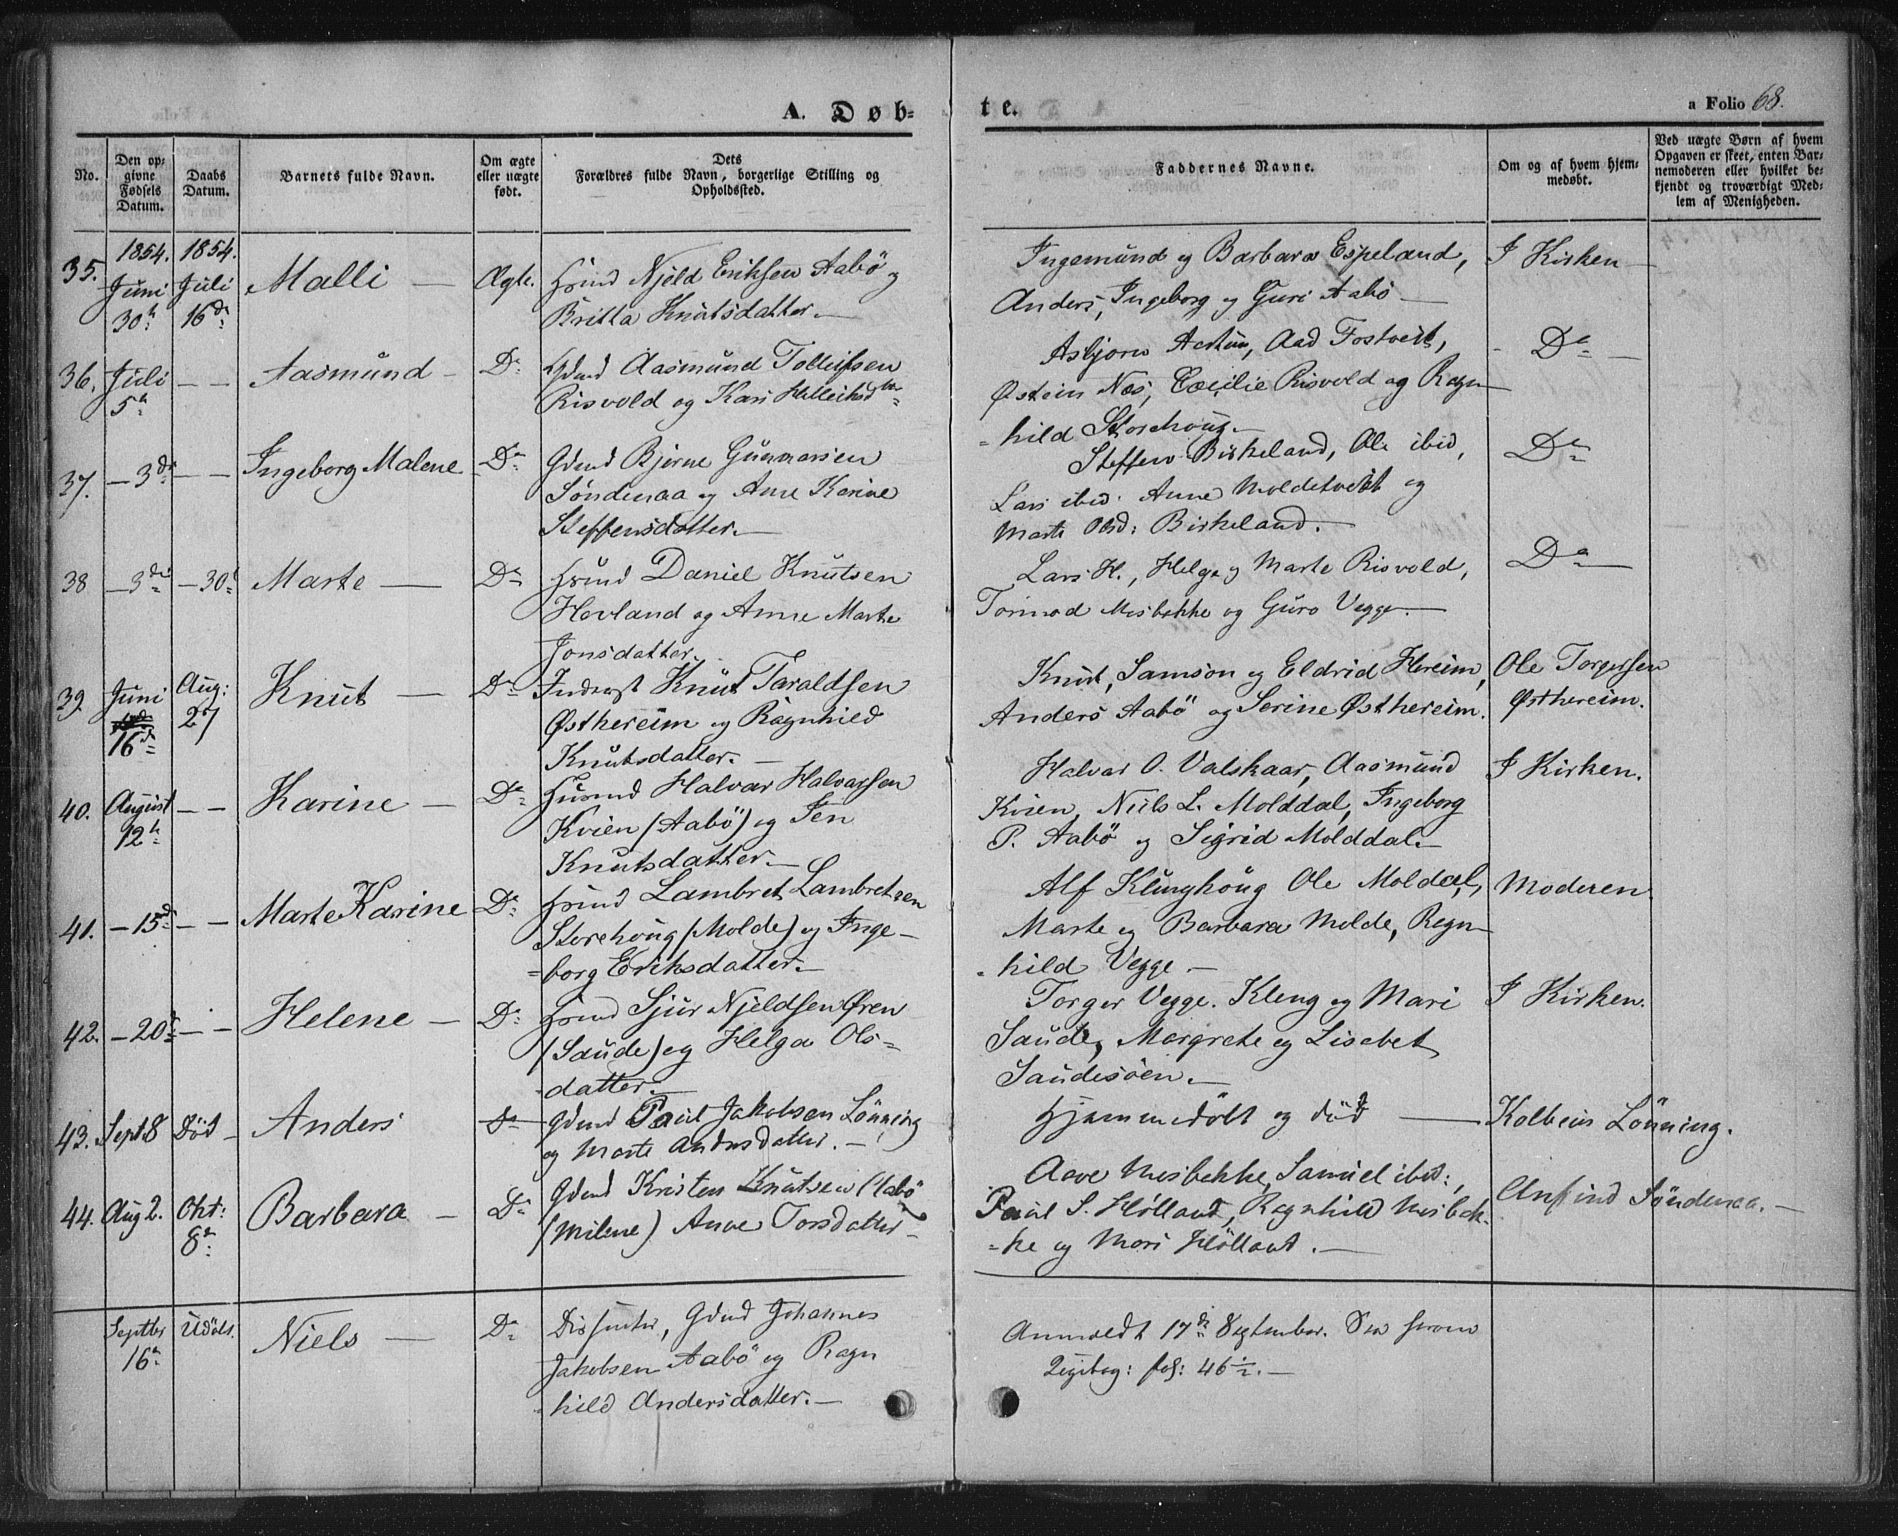 A. Døb=
te.
a Folio 68.
No.
Den op=
givne
Fødsels
Datum.
Daabs
Datum.
Barnets fulde Navn.
Om ægte
eller uægte
født.
Dets
Forældres fulde Navn, borgerlige Stilling og
Opholdssted.
Faddernes Navne.
Om og af hvem hjem=
medøbt.
Ved uægte Børn af hvem
Opgaven er skeet, enten Bar=
nemoderen eller hvilket be=
kjendt og troværdigt Med=
lem af Menigheden.
35.
1854.
Juni
30
1854.
Juli
16de
Malli —
Ægte.
Njeld Eriksen Aabö og
Britta Knutsdatter. —
Ingemund og Barbara Espeland,
Anders, Ingeborg og Guri Aabö —
I Kirken —
36.
Juli
5
— —
Aasmund —
Do
Gdmd Aasmund Tolleifsen
Risvold og Kari
Asbjorn Aartun, Aad Fostveit,
Østein Næs, Cecilie Risvold og Ragn
=hild Storehoug. —
Do —
37.
— 3de
— —
Ingeborg Malene
Do
Gdmd Bjerne Gunnarsen
Søndenaa og Ane Karine
Steffensdatter. —
Steffen Birkeland, Ole ibid,
Lars ibid. Anne Moldetveit og
Marte Birkeland. —
Do
38
— 3de
— 30
Marte —
Do
Daniel Knutsen
Hovland og Anne Marte
Jonsdatter.
Lars H., Helge og Marte Risvold,
Tormod Mosbekke og Guro Vegge. —
Do —
39.
Juni
16de
Aug:
27
Knut —
Do
Knut Taraldsen
Østhereim og Ragnhild
Knutsdatter. —
Knut, Samson og Eldrid Hereim,
Anders Aabö og Serine Østhereim.
Ole Torgersen
Østhereim.
40.
August
12
— —
Karine —
Do
Husmd Halvar Halvarsen
Kvien (Aabö) og Jen
Knutsdatter. —
Halvar O. Valskaar, Aasmund
Kvien, Niels L. Molddal, Ingeborg
P. Aabö og Sigrid Molddal. —
I Kirken.
41.
— 15de
— —
Marte Karine
Do
Lambret Lambretsen
Storehoug (Molde) og Inge—
=borg Eriksdatter. —
Alf Klunghoug Ole Moldal,
Marte og Barbara Molde, Ragn—
=hild Vegge —
Moderen
42.
— 20
— —
Helene —
Do
Sjur Njeldsen Øren
(Saude) og Helga Ols=
datter. —
Torger Vegge. Kleng og Mari
Saude, Margrete og Lisebet
Saudesöen. —
I Kirken.
43.
Sept 8
Död —
Anders
Do
Gdmd Paul Jakobsen Lönning
og Marte Andersdatter. —
Hjemmedöbt og död —
Kolbein Lönning.
44.
Aug 2.
Okt:
8
Barbara —
Do
Gdmd Kristen Knutsen Aabö
(Milene) Anne Torsdatter —
Aave Mosbekke, Samuel ibid:,
Paul S. Hölland, Ragnhild Mosbek=
=ke og Mari Hölland. —
Anfind Söndenaa. —
Septbr
16
Udöbt.
Niels —
Do
Dissenter, Gdmd Johannes
Jakobsen Aabö og Ragn
=hild Andersdatter. —
Anmeldt 17de September. 
fol: 46 ½. —